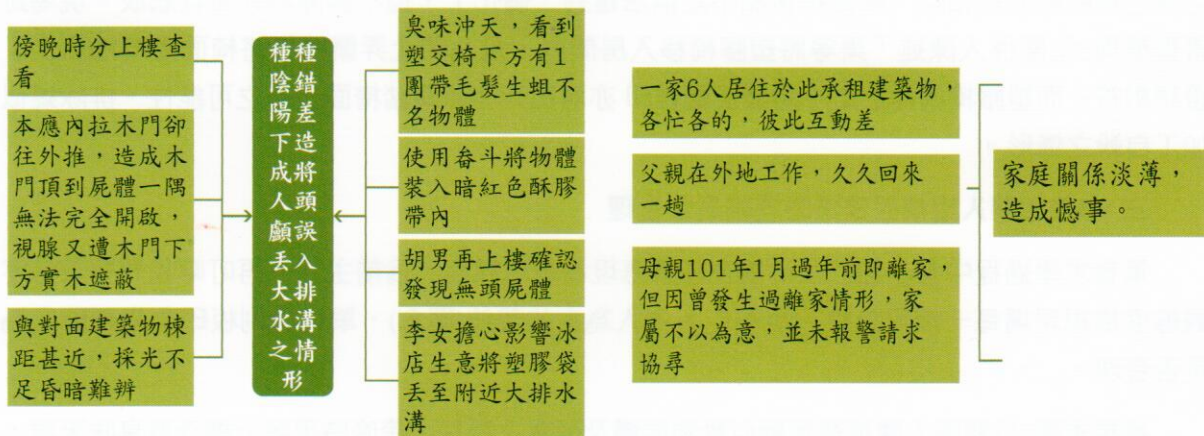 傍晚時分上樓查
看
本應內拉木門卻
往外推，造成木
門頂到屍體一隅
無法完全開啟，
視腺又遭木門下
方實木遮蔽
與對面建築物棟
距甚近，採光不
足昏暗難辨
種種
陰錯
陽差
下造
成將
人頭
顱誤
丟入
大排
水溝
之情
形
臭味沖天，看到
塑交椅下方有1
團帶毛髮生蛆不
名物體
使用畚斗將物體
裝入暗紅色酥膠
帶內
胡男再上樓確認
發現無頭屍體
李女擔心影響冰
店生意將塑膠袋
丟至附近大排水
溝
一家6人居住於此承租建築物，
各忙各的，彼此互動差
父親在外地工作，久久回來
一趟
母親101年1月過年前即離家，
但因曾發生過離家情形，家
屬不以為意，並未報警請求
協尋
家庭關係淡薄，
造成憾事。